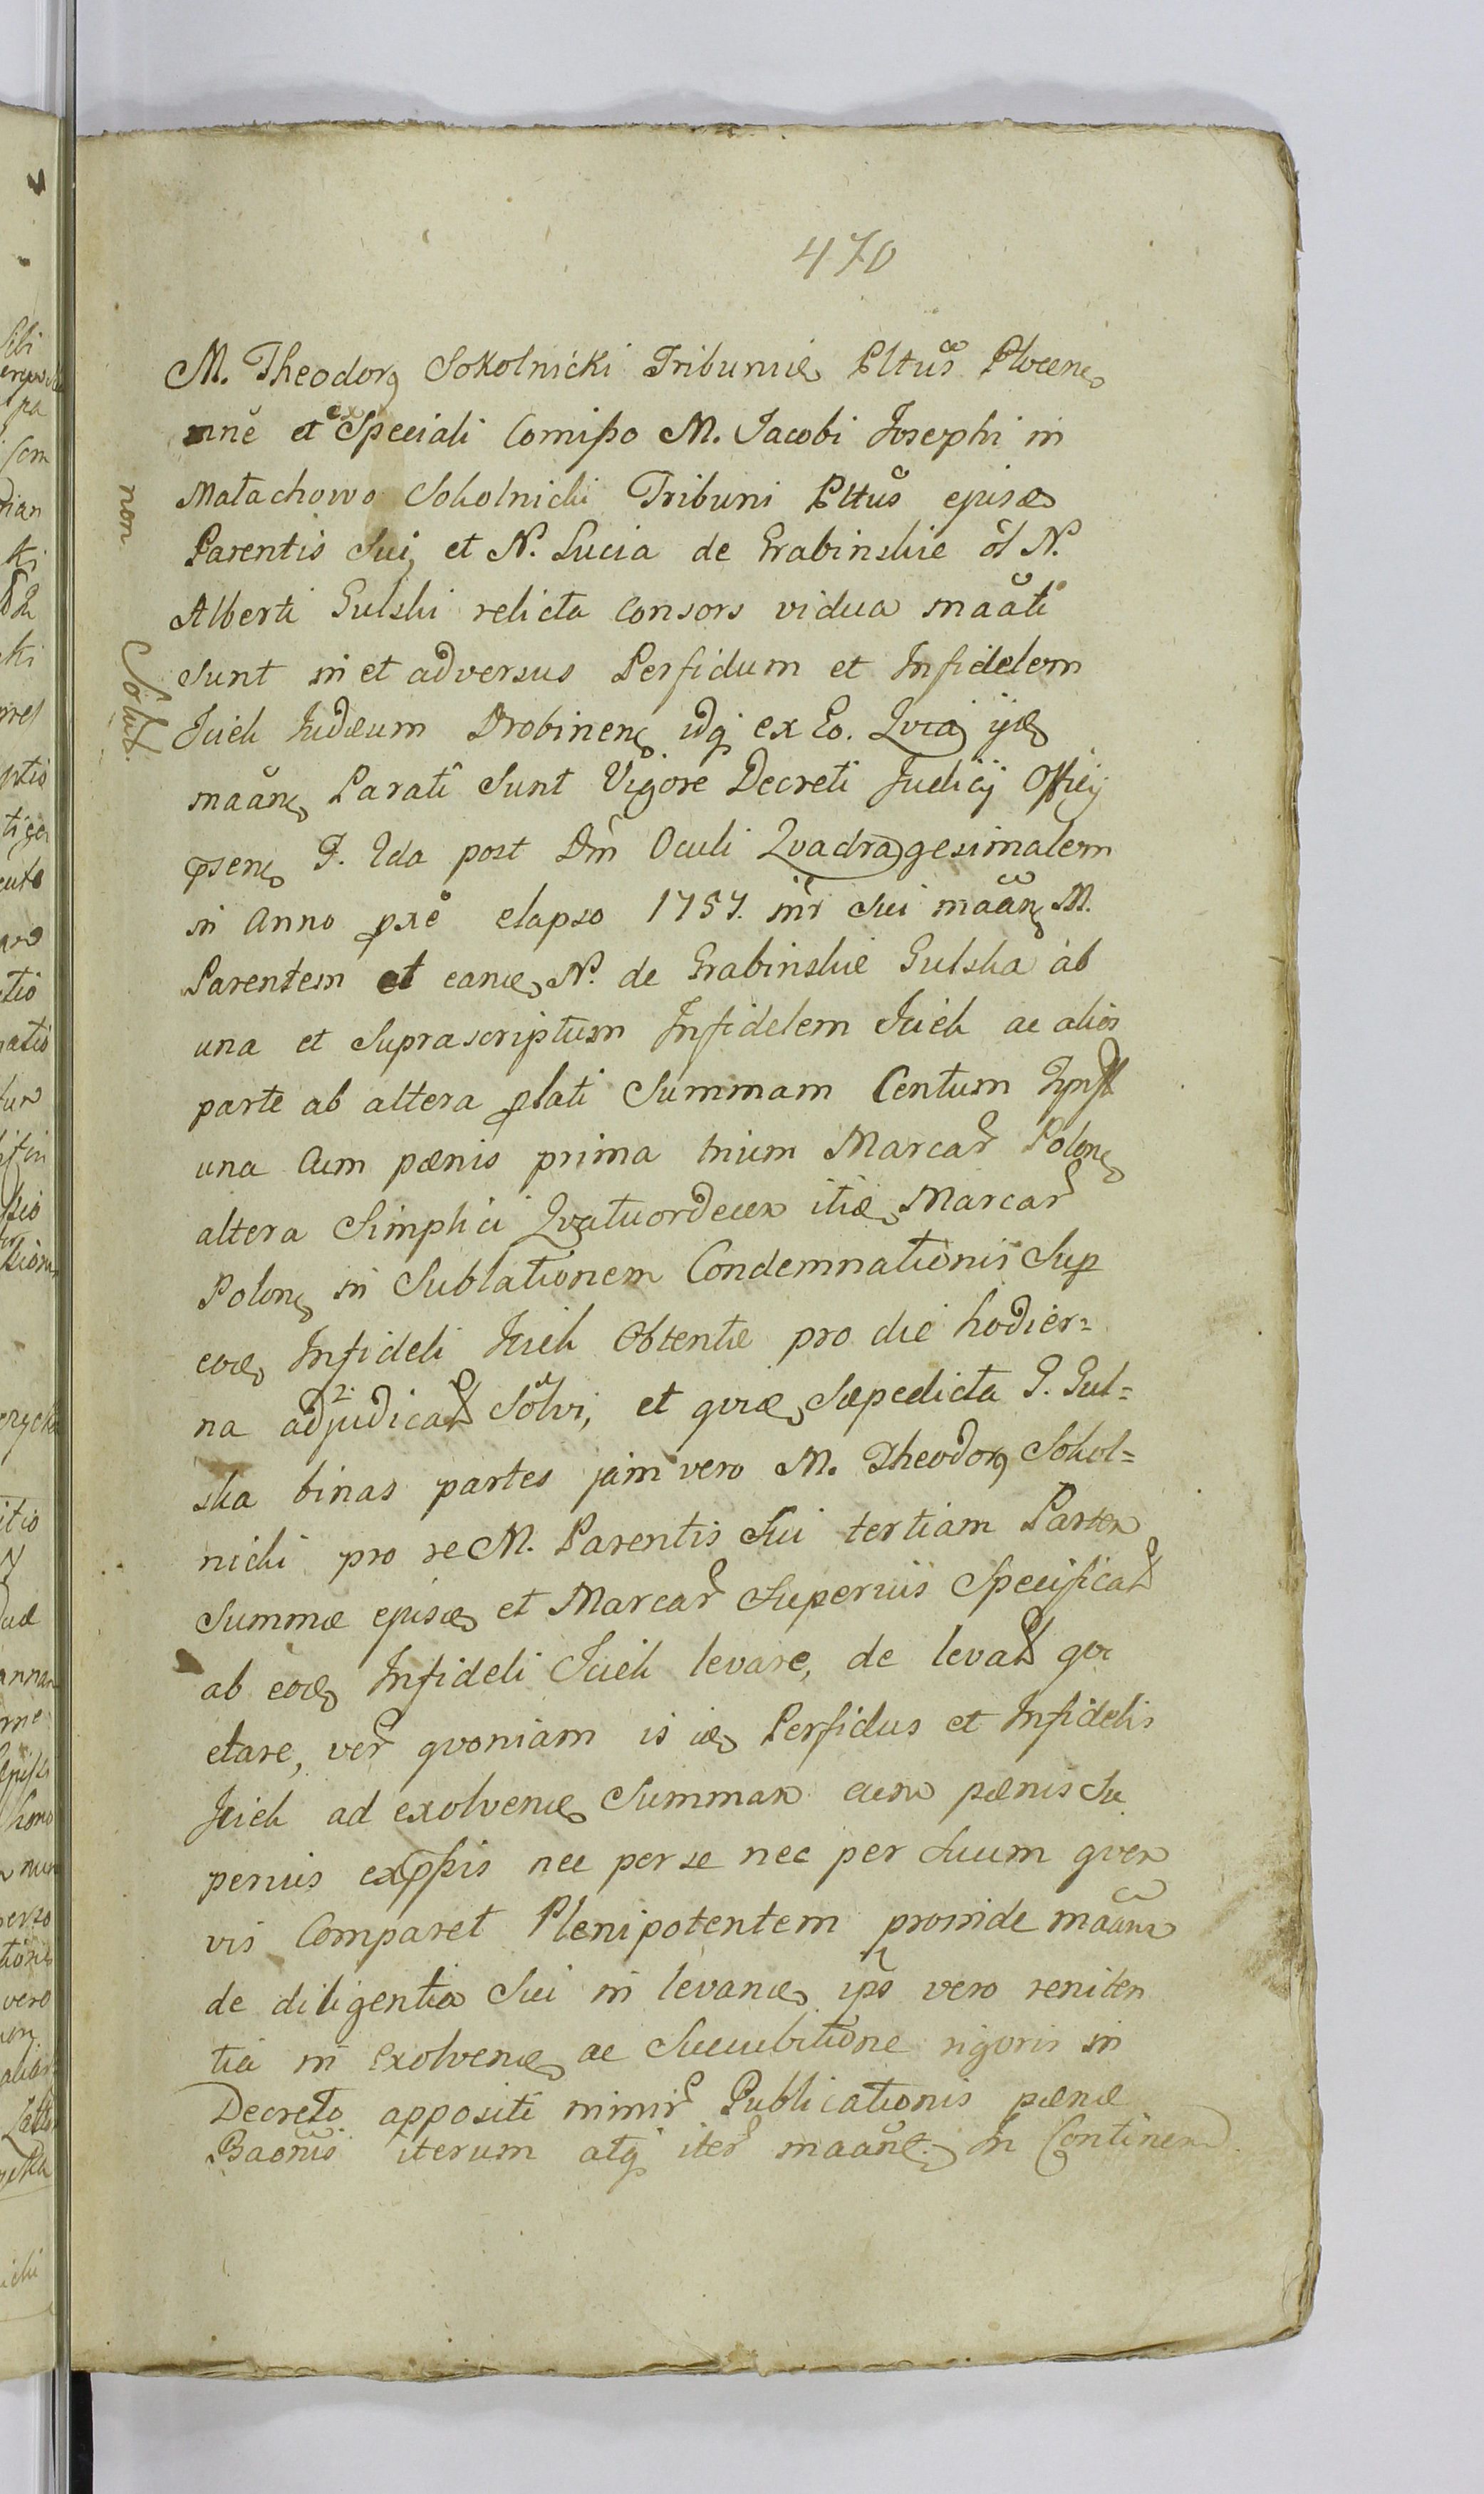 470
M. Theodorꝯ Sokolnicki Tribunidꝭ Pltus Plocenꝭ
nne et ex Speciali Comißo M. Jacobi Josephi in
Małachowo Sokolnicki Tribuni Pltus ejusdꝭ
Parentis Sui, et N. Lucia de Grabinskie ol N.
Alberti Gulski relicta Consors vidua maati
sunt in et adversus Perfidum et Infidelem
Jciek Judæum Drobinenꝭ idqꝫ ex Eo. Qvia ijdꝭ
maanꝭ Parati Sunt Vigore Decreti Judicij Officij
psenꝭ F. 2da post Dm Oculi Qvadragesimalem
in Anno pxe elapso 1757. inr Sui maanꝭ M.
Parentem et eandꝭ N. de Grabinskie Gulska ab
una et Suprascriptum Infidelem Jciek ac alios
parte ab altera plati Summam Centum
una Cum pænis prima trium Marcar Polonꝭ
altera Simplici Qvatuordecem itidꝭ Marcar
Polonꝭ in Sublationem Condemnationis Sup
eodꝭ Infideli Jciek Obtentæ pro die hodier=
na adjudicat Solvi, et qvidꝭ Sæpedicta G. Gul=
ska binas partes jam vero M. Theodorꝯ Sokol=
nicki pro re M. Parentis Sui tertiam Partem
Summæ ejusdꝭ et Marcar Superius Specificat
ab eodꝭ Infideli Jciek levare, de levat qvi
etare, ver qvoniam is idꝭ Perfidus et Infidelis
Jciek ad exolvendꝭ Summam cum pænis Su
perius expßis nec per se nec per Suum qvem
vis Comparet Plenipotentem proinde maanꝭ
de diligentia Sui in levandꝭ ips vero reniten
tia in exolvendꝭ ac Succubitione rigoris in
Decreto appositi nimir Publicationis pænæ
Baonis iterum atqꝫ iter maant. In Continen
non Solut.